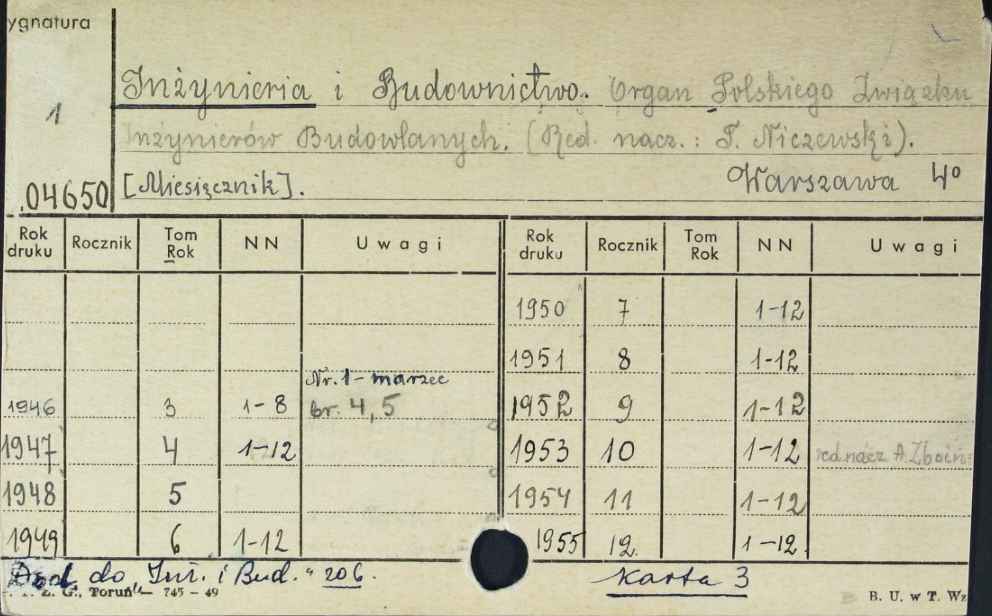 ygnatura
1
.04650
Inżynieria i Budownictwo. Organ Polskiego Związku
Inżynierów Budowlanych. (Red. nacz.: T. Niczewski).
[Miesięcznik]. Warszawa 4º
Rok druku Rocznik Tom Rok NN Uwagi Rok druku Rocznik Tom Rok NN Uwagi
1950 7 1-12
1951 8 1-12
Nr. 1 - marzec
1946 3 1-8 br. 4,5 1952 9 1-12
1947 4 1-12 1953 10 1-12 red. nacz A. Zboiń
1948 5 1954 11 1-12
1949 6 1-12 1955 12. 1-12.
Dod. do "Inż. i Bud." 206. Karta 3
Z. G., Toruń — 745 – 49 B. U. w T. Wz